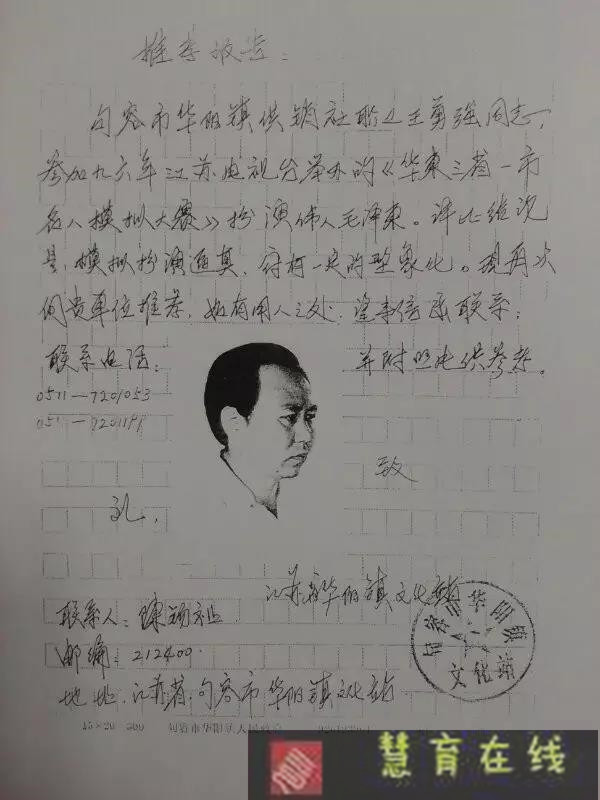 推荐报告：
句容市华阳镇供销社职工王勇强同志，
参加九六年江苏电视台举办的《华东三省一市
名人模拟大赛》扮演伟人毛泽东。评比结说
是，模拟扮演逼真，容有一定的形象化。现再次
向贵单位推荐，如有用人之处，望来信函联系；
联系电话： 并附照片供参考。
0511—7201053
0511—7201191
致
礼，
江苏省华阳镇文化站
联系人：陈
邮编：212400.
地址：江苏省，句容市华阳镇文化站
句容市华阳镇
文化站
15×20=300 句容市华阳镇人民政府
慧育在线